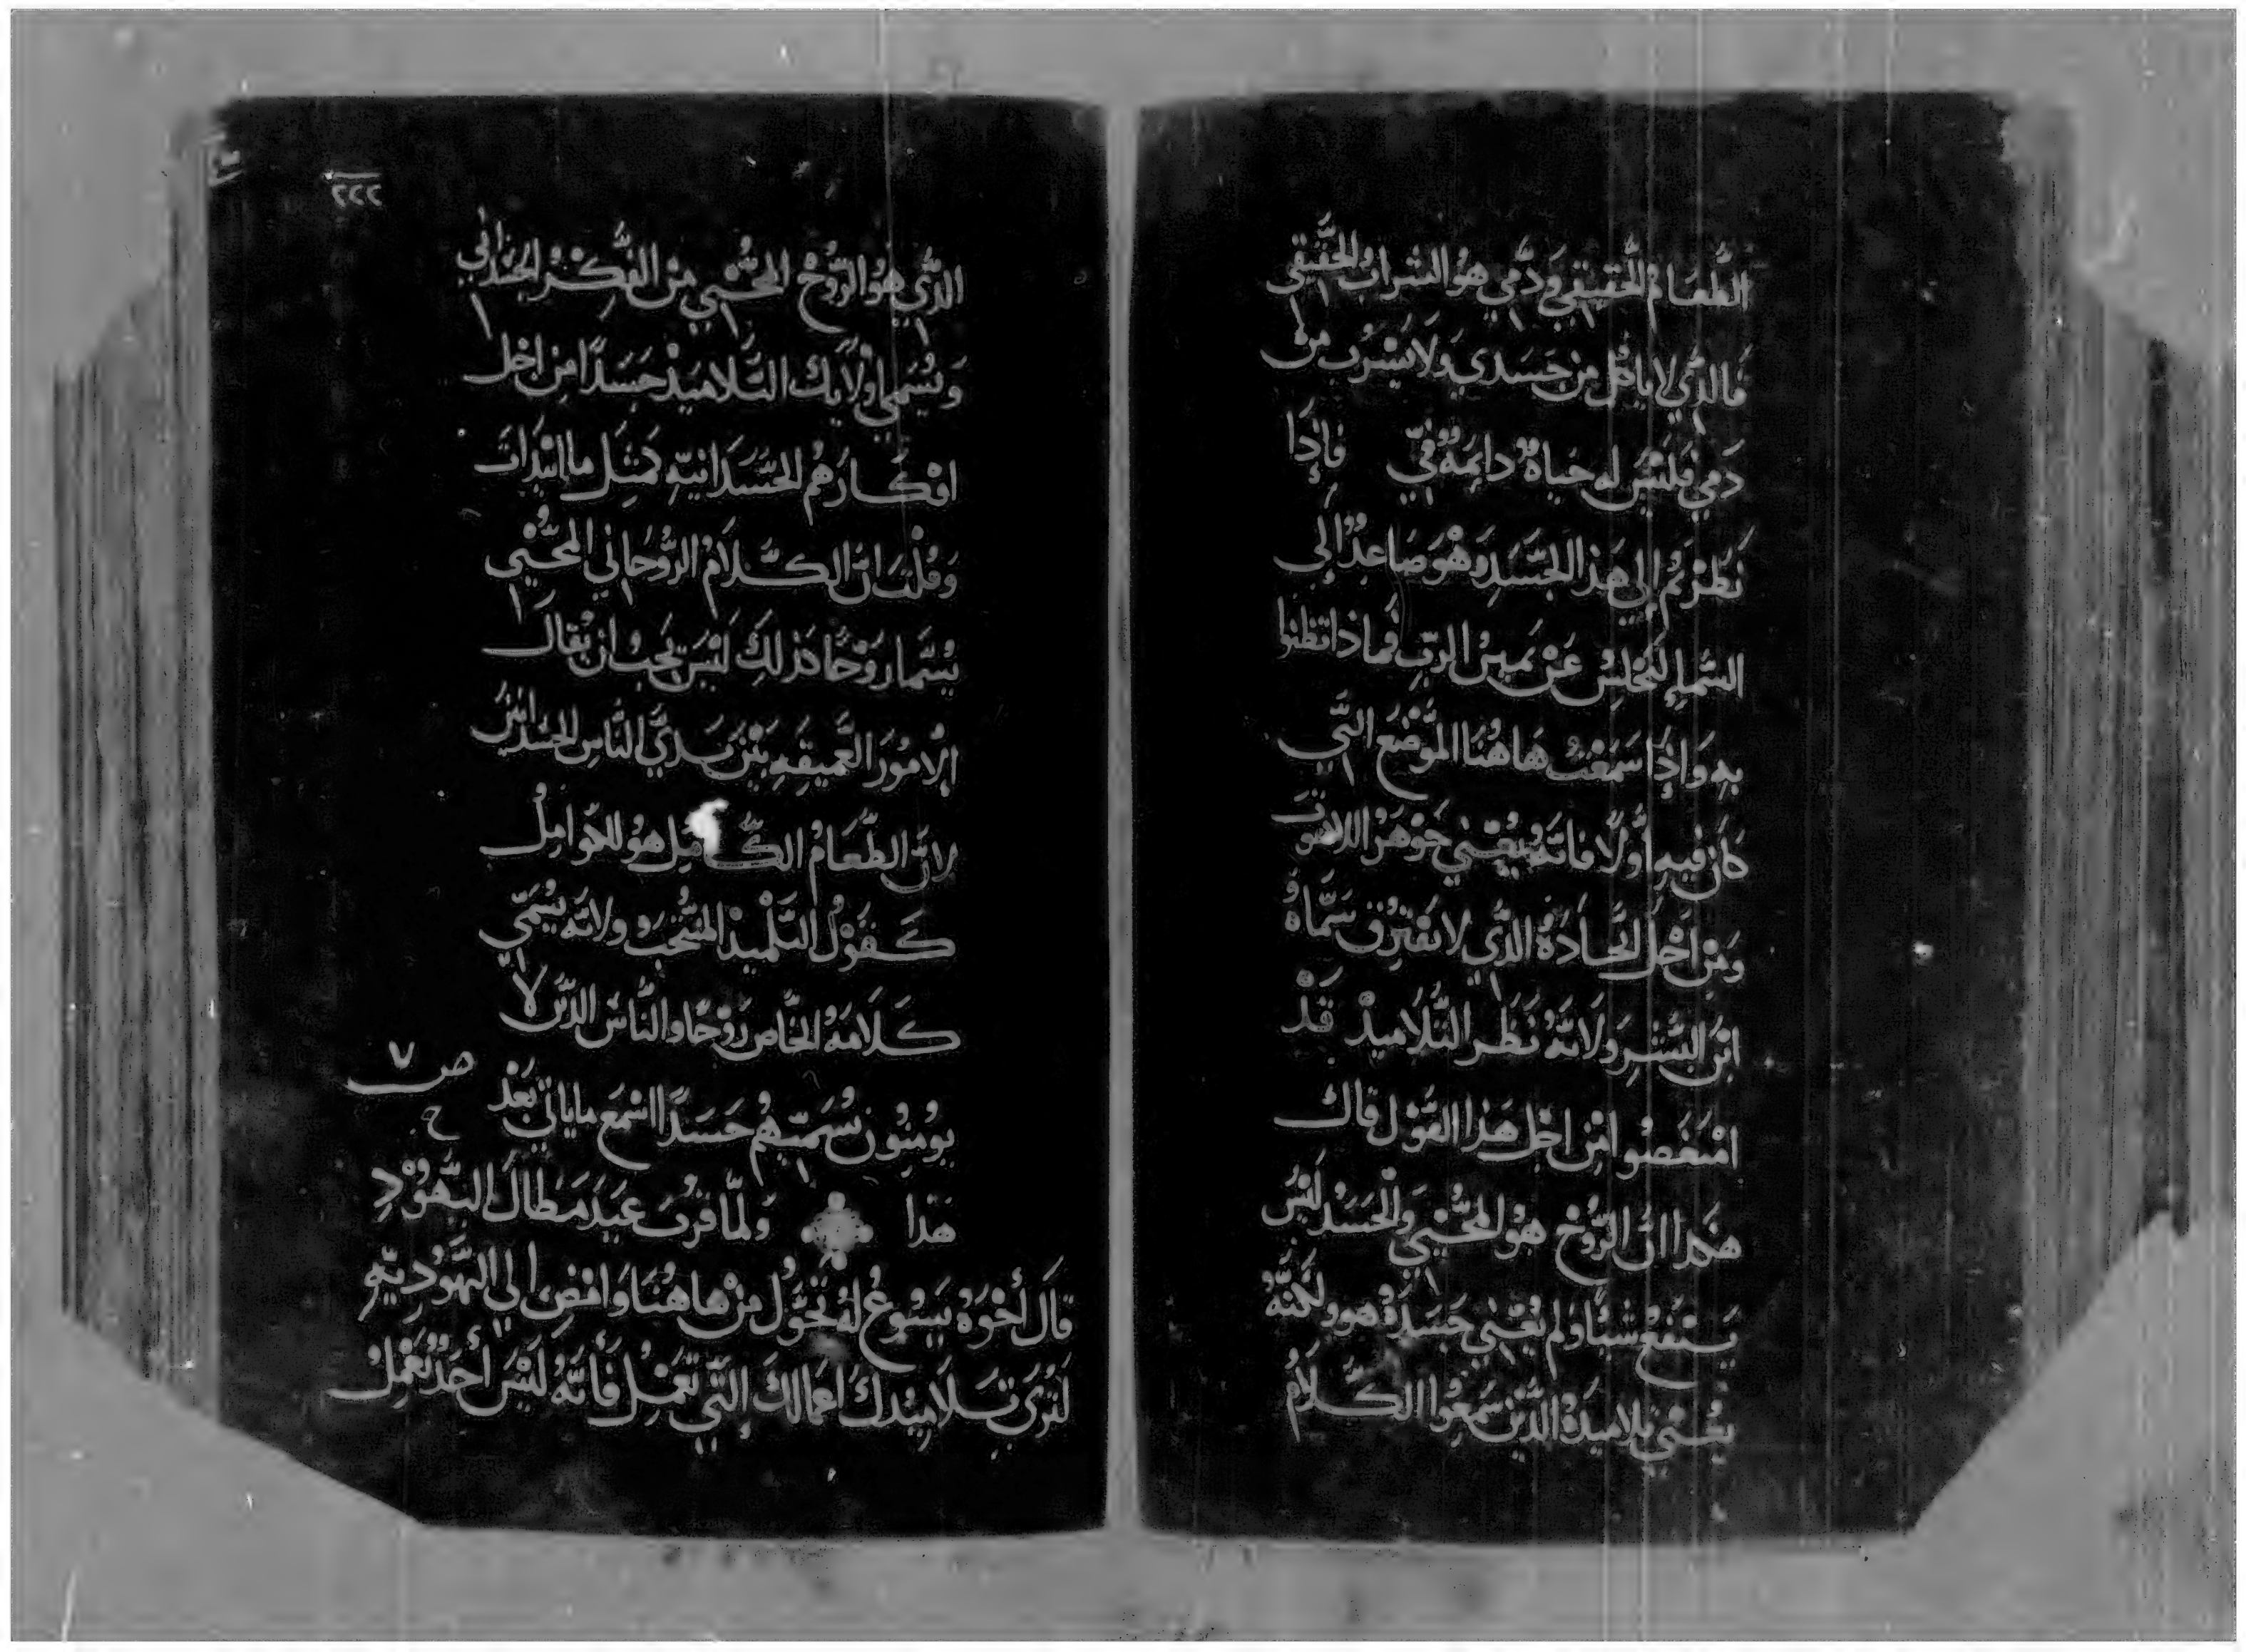 الطَّعَامُ الحَّقيقي وَدَّمي هوُ الشراب الحَّقيقي
فالذَّي لا ياكل من جَسَدي وَلا يَشْرَب من
دَمي فلَيْسَ له حياةٌ دايمَةٌ فيَّ فاِذا
نَظَرْتمُ اِلي هَذا الجسَدِ وَهْوَ صَاعِدٌ اِلَى
السَّماءِ لِيَجْلسْ عَنْ يَمين الربِّ فماذا تظنوا
بهِ وَاِذَا سَمعْتْ هَاهُنا الموْضِعَ التَّي
كان فيهِ اوَّلًا فانَّهُ يَعْني جَوْهَرُ اللاهوتَ
وَمِنْ اجْل اتَّحادهُ الذَّي لا يفْترق سَمَّاهُ
ابْن البَشَرِ وَلانَّهُ نَظَر التَّلاميذْ قَدْ
امْتَغصُوا مْن اجْل هَذا القوْل قال
هَكذا انَّ الرُّوحْ هوُ المحُيْي وَالْجَسَدْ ليْسَ
يَنْفَعْ شيئًا وَلم يَعْني جَسَدَهُ هوَ ولَكنَّهُ
يَعْني تلاميذهُ الذَّين سَمعُوا الكَلامُ
٢٢٢
الذَّي هوُ الرُّوحْ المحُيْي مِنْ الفكْر الجسَدَاني
وَيُسَمي اولايك التَّلاميَذْ جَسَدًا مِن اجْل
افْكارَهُم الجسَدَانيَّهِ كمثِل ما ابْتدَات
وَقلْت انَّ الكَلامُ الرُّوحَاني المحُيْي
يُسَّما روْحًا كذلِكَ لَيْسَ يَجبُ ان يُقال
الامُورَ العَميقهِ بَيْنَ يَديَّ النَّاسِ الجسْدَانيين
لانَّ الطَّعَامُ الكامِل هوُ للكوامِلُ
كَقَوْلُ التَّلْميذ المنْتخبْ ولانَّه يُسَمَّي
كَلَامَهُ الخَّاص رَوْحًا وَالنَّاسَ الذَّين لا
يومِنُون يُسَمّيهُم جَسَدًا اسْمَع ما ياتي بَعْد
ص ٧
ح
هَذا وَلمَّا قرُبَ عيَدَ مَطالَّ اليَهُوْدِ
قاَل أخْوَهُ يَسُوعْ لهُ تحَّول مِنْ هاهُنَا وَامْضِ اِلي اليَهُوديَّهِ
لَترَي تَلاميْدكَ اعْمالكَ التَّي تعْمَل فَأنَّهُ لَيْسَ أحَدٌ يَعْمَلْ